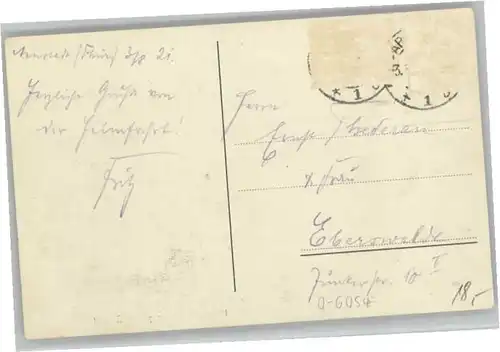 Arnstadt (Thür) 3/8 21.
Herzliche Grüße von
der Heimfahrt!
Fritz
Herrn
Ernst
u. Frau
Eberswalde
str. 10 I
D-6054
18,-
* 1
* 1